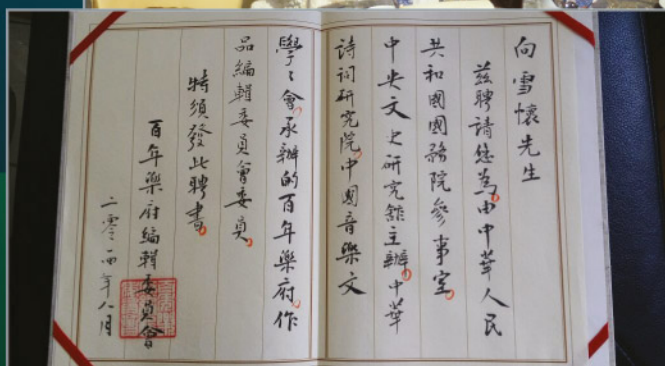 向雪懷先生
茲聘請您為由中華人民
共和國國務院參事室
中央文史研究館主辦中華
詩詞研究院中國音樂文
學學會承辦的百年樂府作
品編輯委員會委員
特頒發此聘書
百年樂府編輯委員會
二零一四年八月